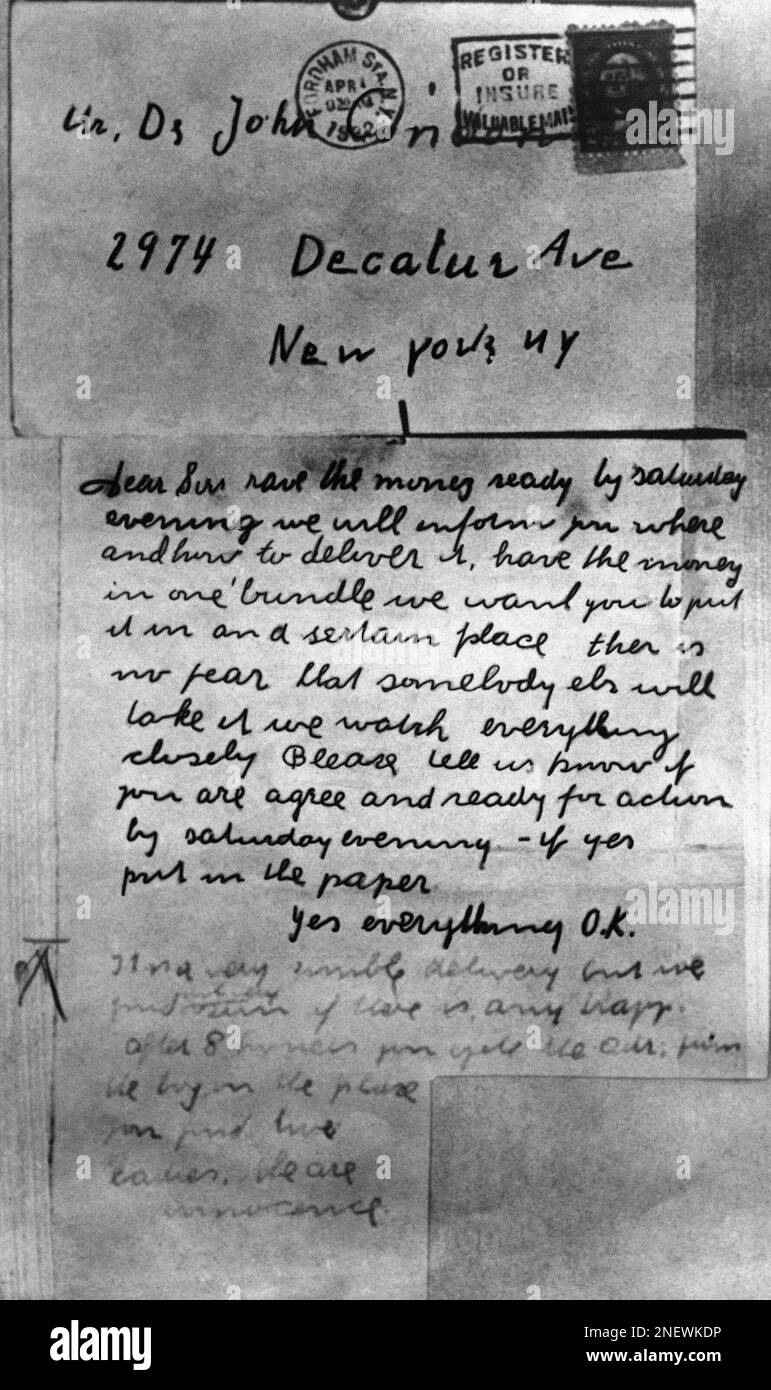 FORDHAM STA. N.Y.
APR 1
1932
REGISTER
OR
INSURE
VALUABLE MAIL
Mr. Dr John
2974 Decatur Ave
New York NY
dear Sir have the money ready by saturday
evening we will inform you where
and how to deliver it, have the money
in one bundle we want you to put
it in and sertain place ther is
no fear that somebody els will
take it we watch everything
closely Blease tell us know if
you are agree and ready for action
by saturday evening - if yes
put in the paper
Yes everything O.K.
very simble delivery but we
find if there is any trapp.
after 8 you the Adr. from
the boy on the
you find two
ladies. the are
innocence
alamy
Image ID: 2NEWKDP
www.alamy.com